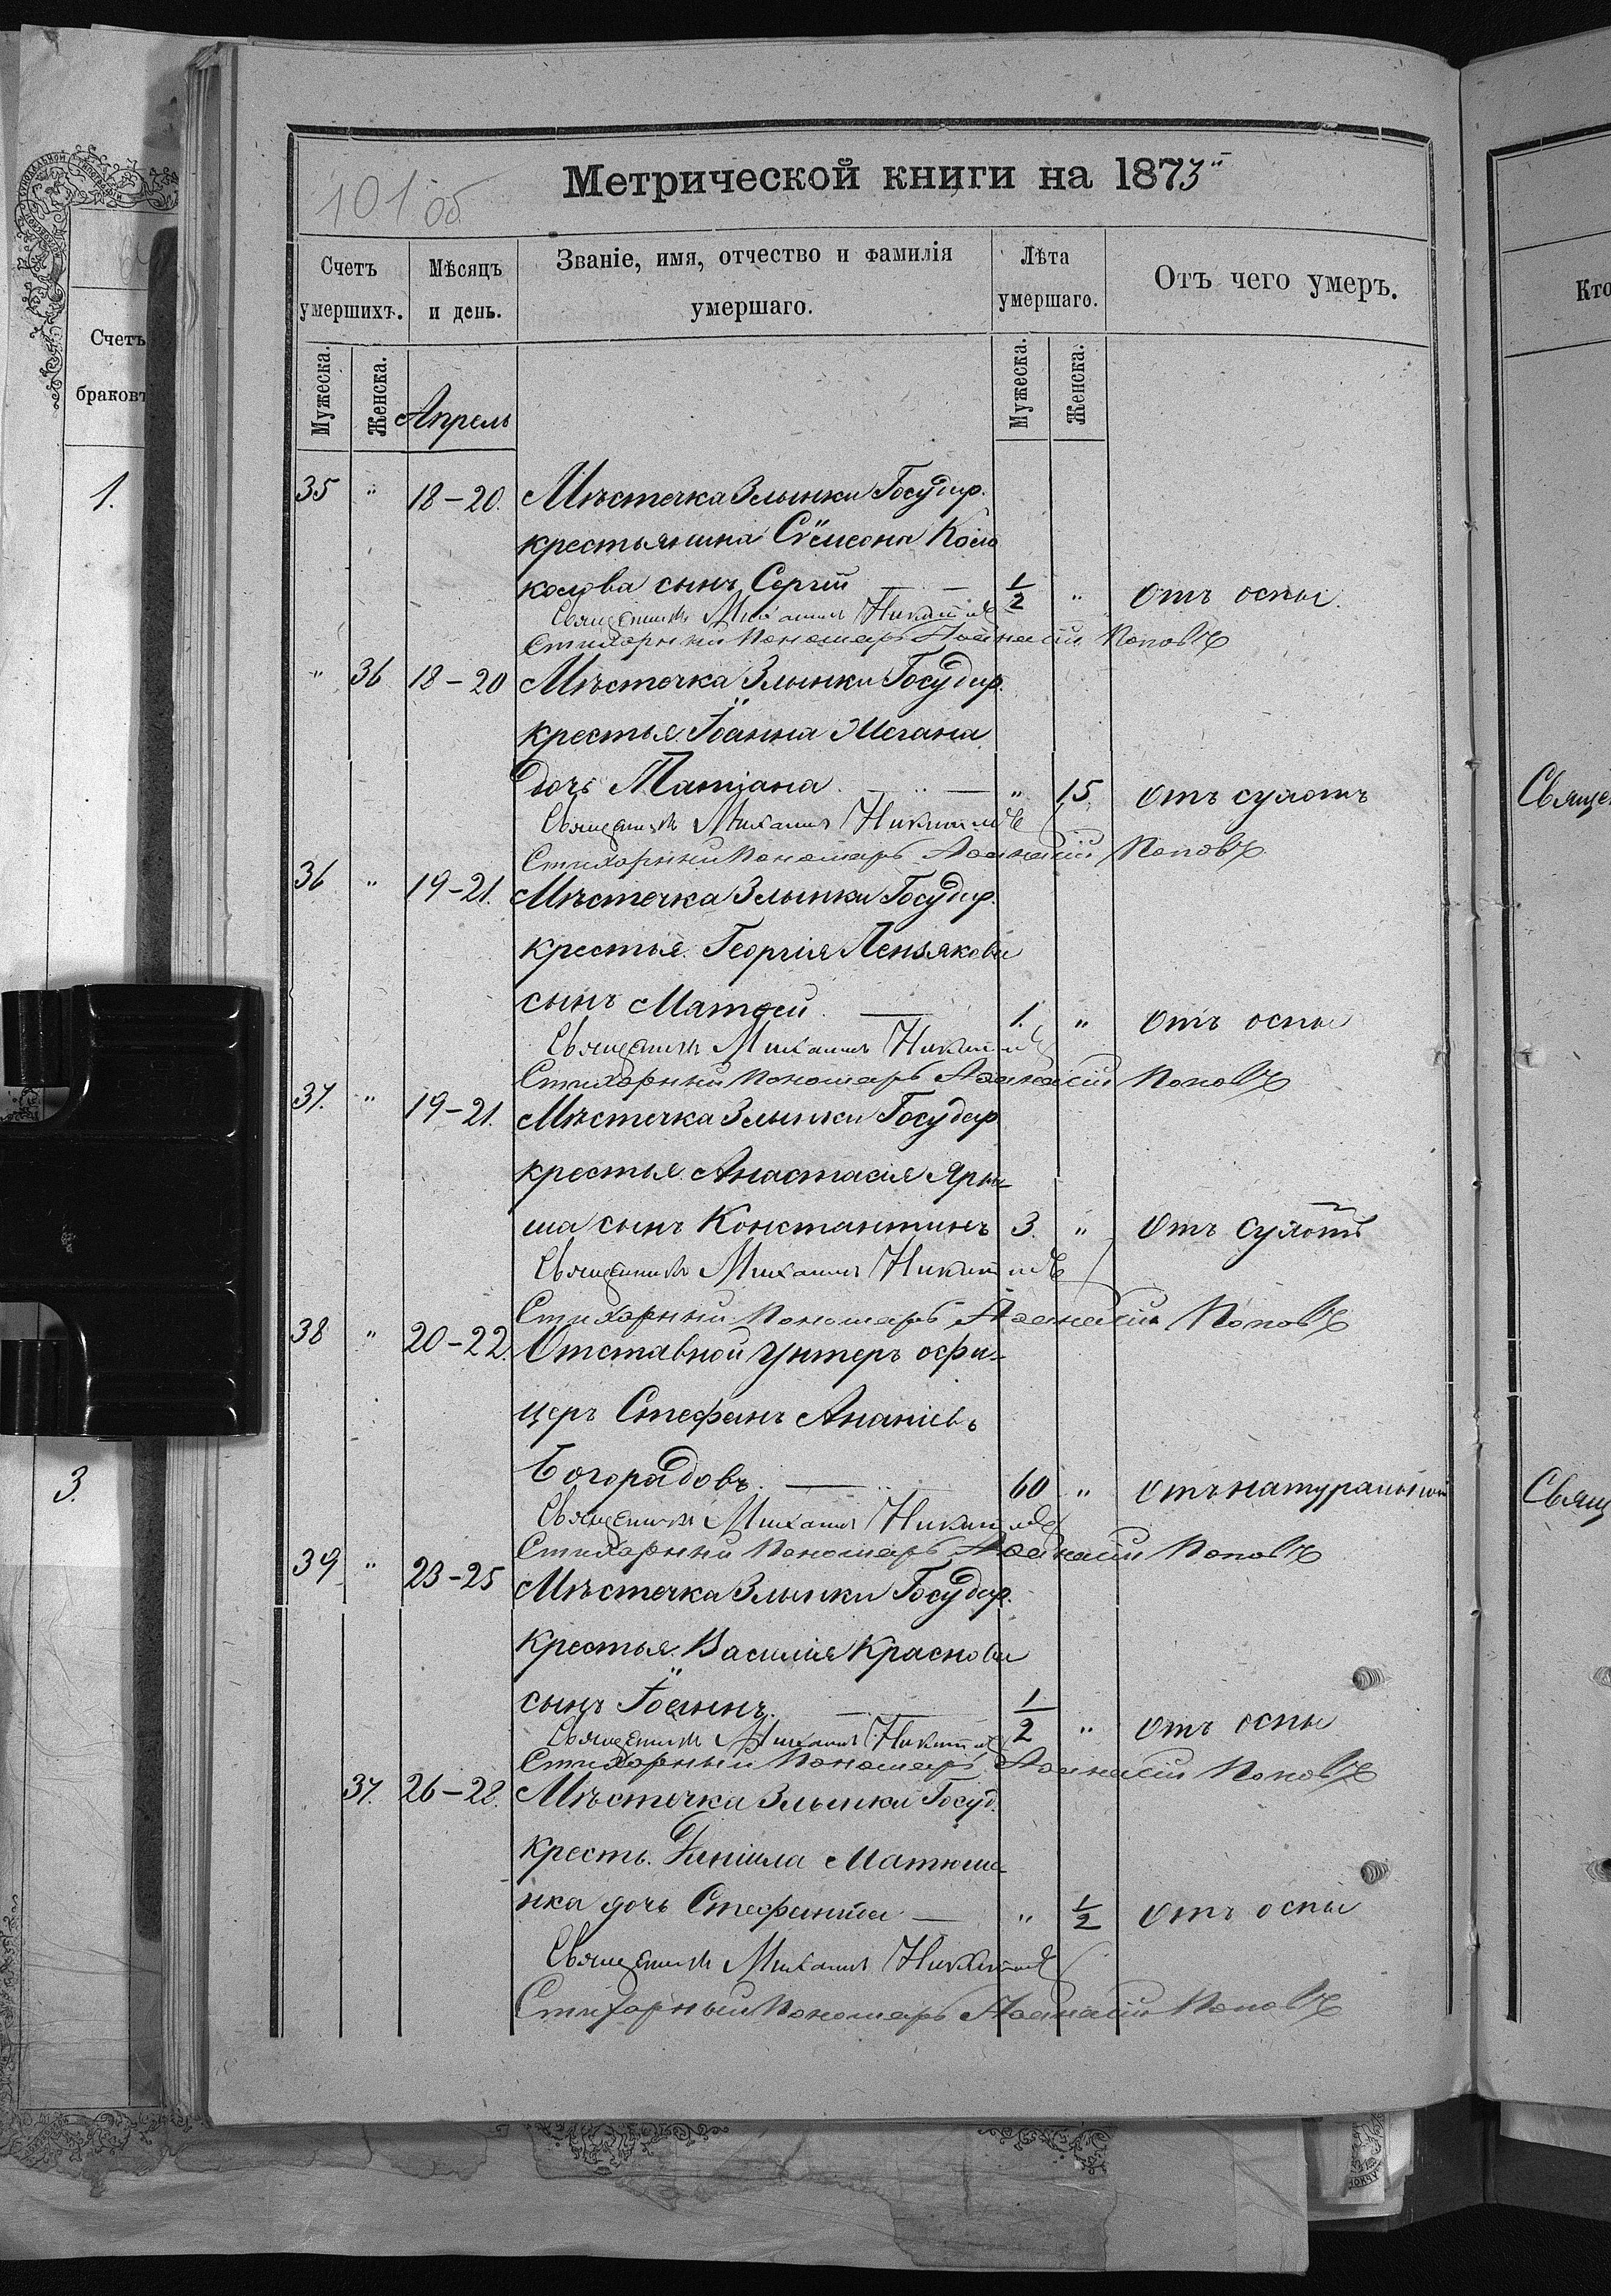 101 об.
Метрической книги на 1873"
Счетъ умершихъ.
Мѣсяцъ и день.
Званіе, имя, отчество и фамилія умершаго.
Лѣта умершаго.
Отъ чего умеръ.
Мужеска.
Женска.
Апрель
Мужеска.
Женска.
35 " 18-20. Мѣстечка Злынки Государ.
крестьянина Сѵмеона Коло
колова сынъ Сергій 1/2 " Отъ оспы.
Священникъ Михаилъ Никитинъ
Стихорный Пономарь Аѳанасій Поповъ
" 36 18-20 Мѣстечка Злынки Государ.
крестья. Іоанна
дочь Татіана " 15 Отъ сухотъ
Священникъ Михаилъ Никитинъ
Стихорный Пономарь Аѳанасій Поповъ
36 " 19-21. Мѣстечка Злынки Государ.
крестья. Георгія Пензякова
сынъ Матѳей 1. " Отъ оспы
Священникъ Михаилъ Никитинъ
Стихорный Пономарь Аѳанасій Поповъ
37. " 19-21. Мѣстечка Злынки Государ
крестья. Анастасія Яры-
ша сынъ Константинъ 3. " Отъ сухотъ
Священникъ Михаилъ Никитинъ
Стихорный Пономарь Аѳанасій Поповъ
38 " 20-22. Отставной унтеръ офи-
церъ Стефанъ Ананіевъ
Богорадовъ. 60 " Отъ натуральной
Священникъ Михаилъ Никитинъ
Стихорный Пономарь Аѳанасій Поповъ
39 " 23-25 Мѣстечка Злынки Государ.
крестья. Василія Краснова
сынъ Іоаннъ. 1/2 " Отъ оспы
Священникъ Михаилъ Никитинъ
Стихорный Пономарь Аѳанасій Поповъ
37. 26-28. Мѣстечка Злынки Госуд.
кресть. Даніила Матюше
нка дочь Стефанида " 1/2 Отъ оспы
Священникъ Михаилъ Никитинъ
Стихорный Пономарь Аѳанасій Поповъ
Счетъ
браковъ
1.
3.
Кто
Священ
Свящ